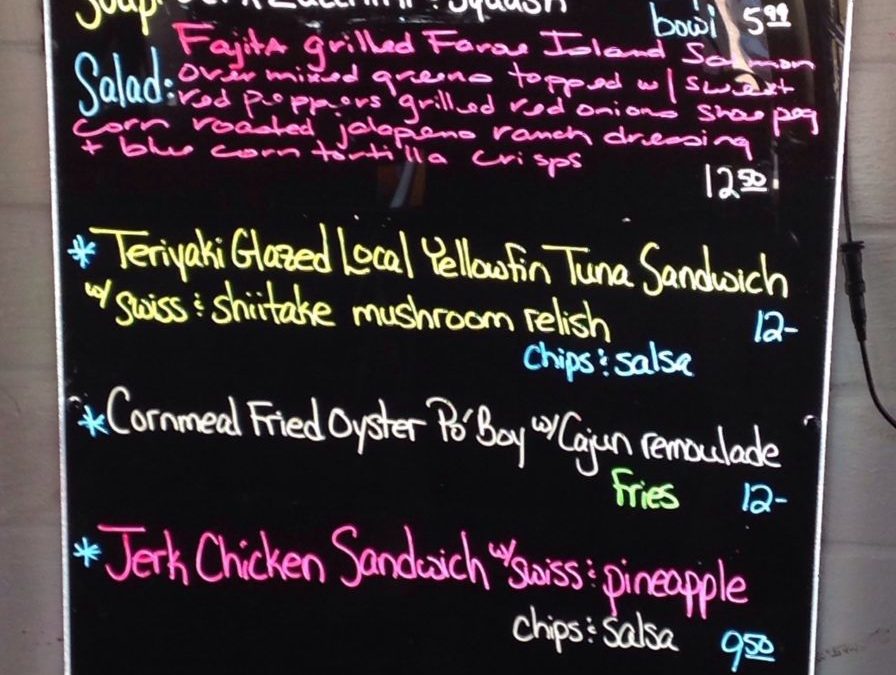 Soup: Zucchini & Squash
bowl 5.99
Fajita grilled Faroe Island Salmon
Salad: over mixed greens topped w/ sweet
red peppers grilled red onions shoe peg
corn roasted jalapeno ranch dressing
+ blue corn tortilla crisps
12.50
* Teriyaki Glazed Local Yellowfin Tuna Sandwich
w/ swiss & shiitake mushroom relish 12-
chips & salsa
* Cornmeal Fried Oyster Po' Boy w/ Cajun remoulade
Fries 12-
* Jerk Chicken Sandwich w/ swiss & pineapple
chips & salsa 9.50